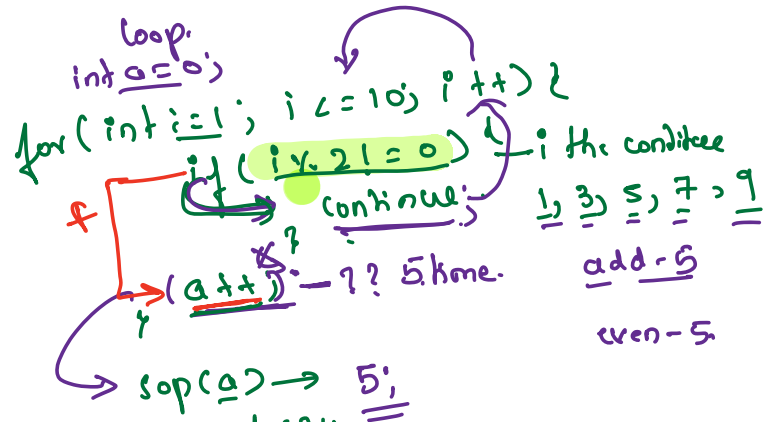 loop.
int a = 0;
for( int i=1; i <= 10; i ++) {
if ( i % 2 != 0 ) {
i the
continue;
1, 3, 5, 7, 9
f
}
(a++) — ?? 5 time.
add - 5
}
even - 5
sop(a) → 5;